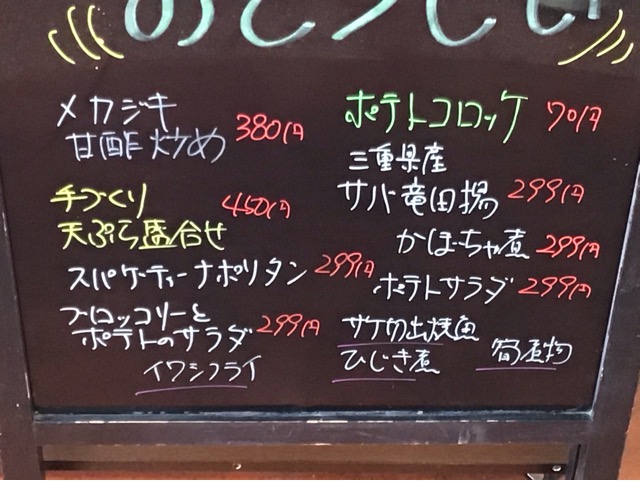 メカジキ
甘酢炒め 380円
手づくり 450円
天ぷら盛合せ
スパゲティーナポリタン 299円
ブロッコリーと
ポテトのサラダ 299円
イワシフライ
ポテトコロッケ 70円
三重県産
サバ竜田揚 299円
かぼちゃ煮 299円
ポテトサラダ 299円
サケ切出焼魚
ひじき煮
筍煮物